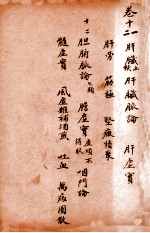 卷十一 肝臟上 肝臟脈論 肝虛實
肝勞 筋極 堅癥積聚
十二 膽腑脈論 膽虛實 咽門論
髓虛實 風虛雜補酒煎 吐血 萬病圓散